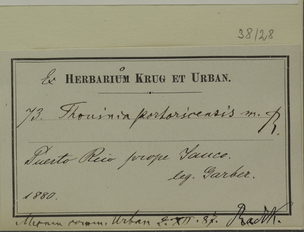 38/28
Ex HERBARIUM KRUG ET URBAN.
73. Thouinia portoricensis
Puerto Rico prope Yauco.
leg. Garber.
1880.
Urban 2. XII. 87. Radlk.